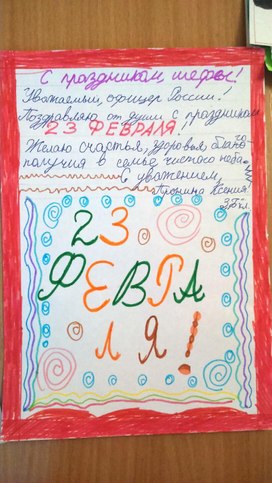 С праздником шефы!
Уважаемый, офицер России!
Поздравляю от души с праздником
23 ФЕВРАЛЯ!
Желаю счастья, здоровья, благо-
получия в семье, чистого неба.
С уважением,
Ксения!
23
ФЕВРА
ЛЯ!